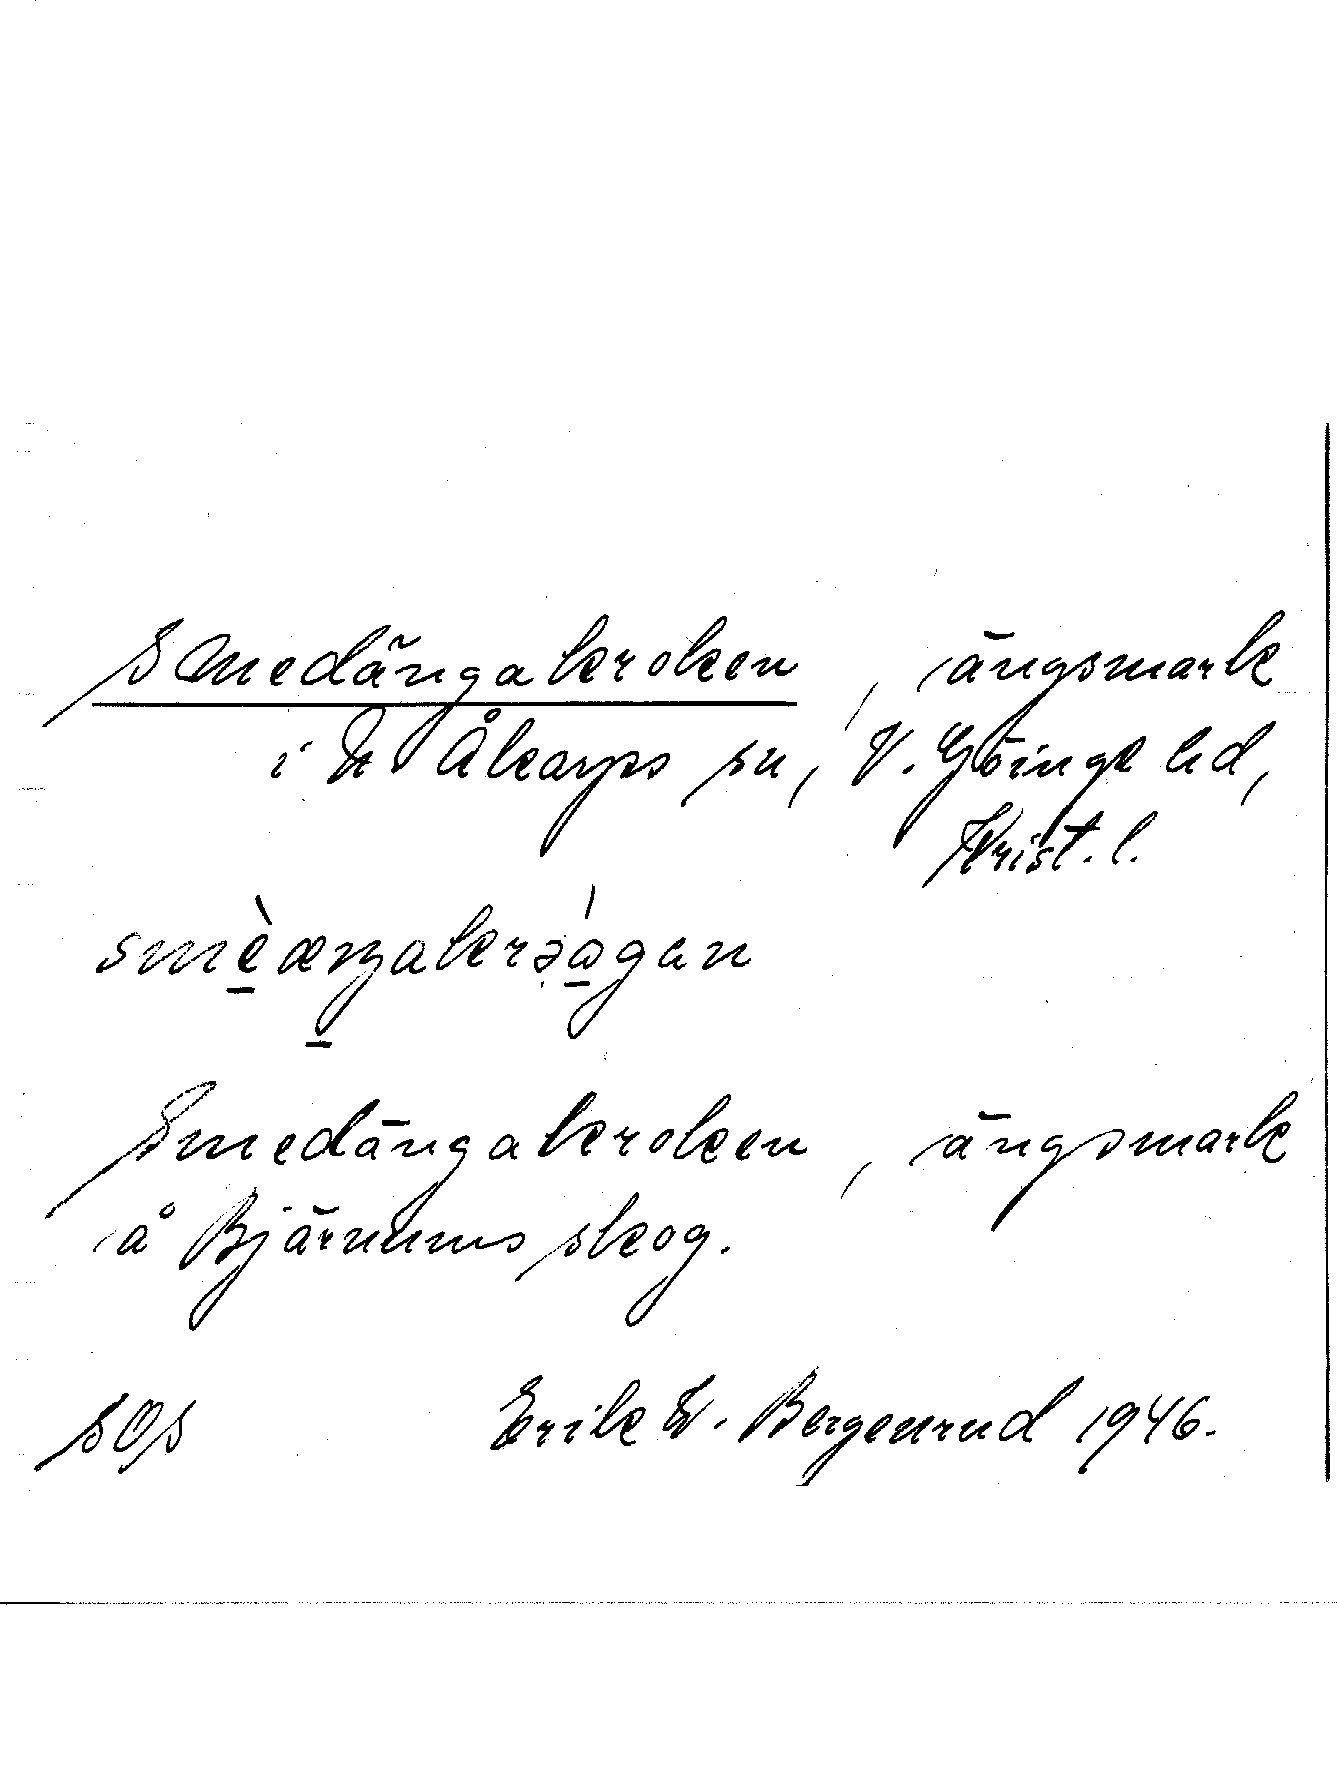 Smedängakroken, ängsmark
i N Åkarps sn, V. Göinge hd,
Krist. l.
Smedängakroken, ängsmark
å Bjärnums skog.
SOS Erik W. Bergenrud 1946.